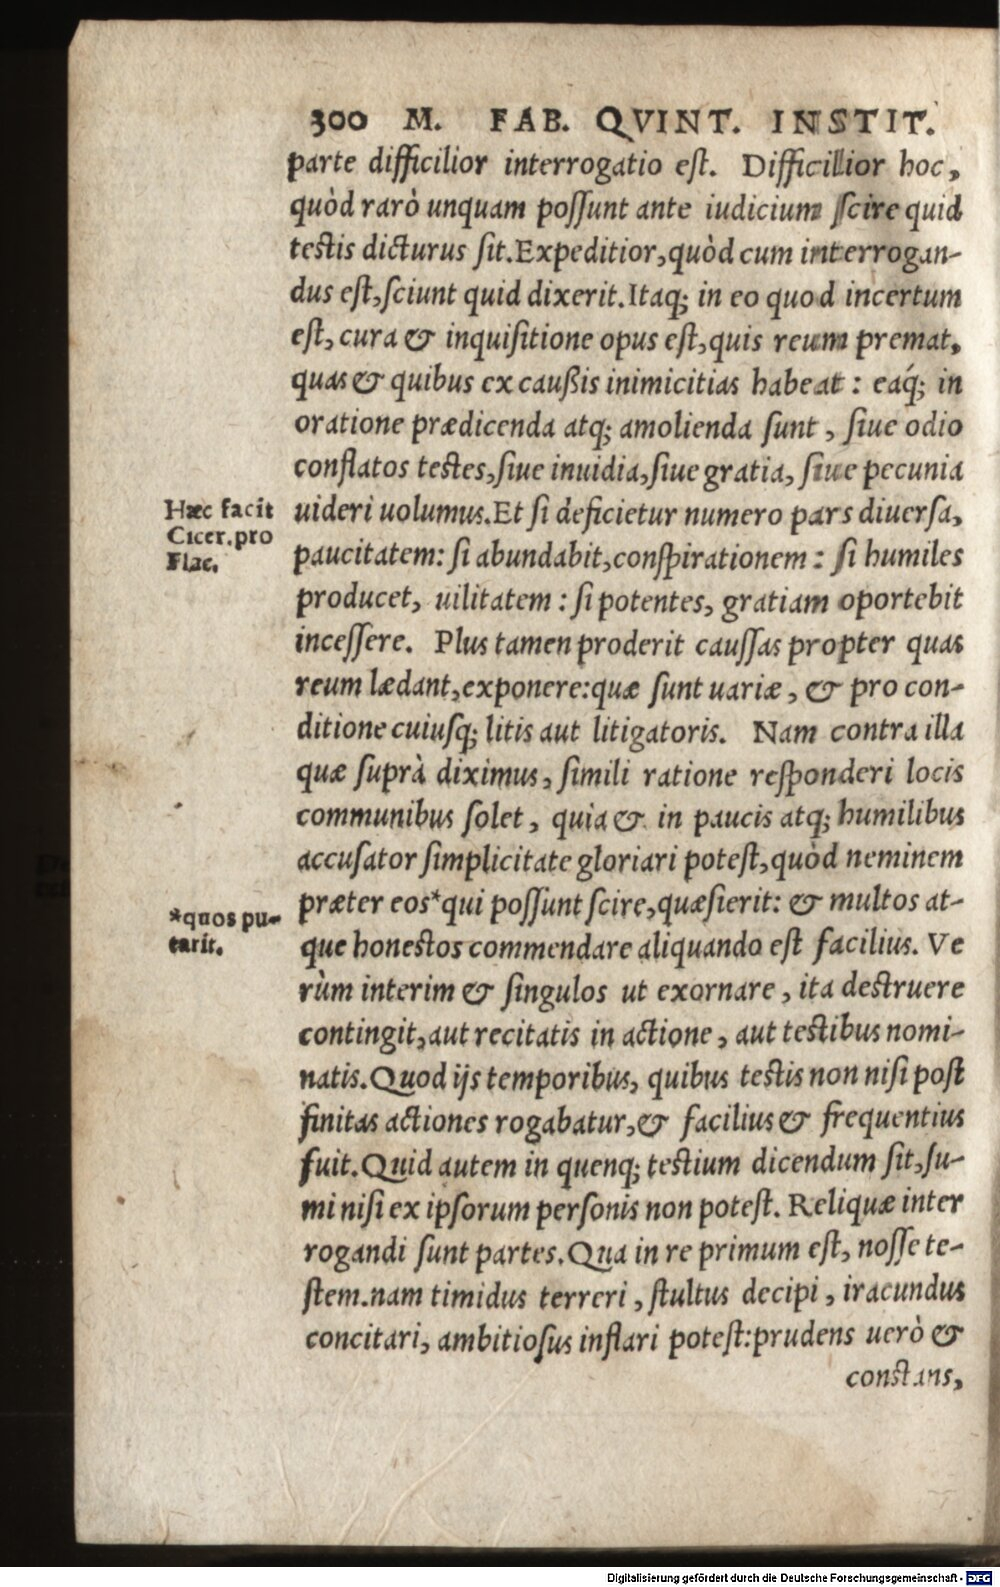 300 M. FAB. QVINT. INSTIT.
parte difficilior interrogatio est. Difficilior hoc,
quòd rarò unquam possunt ante iudicium scire quid
testis dicturus sit. Expeditior, quòd cum interrogan-
dus est, sciunt quid dixerit. Itaq; in eo quod incertum
est, cura & inquisitione opus est, quis reum premat,
quas & quibus ex caußis inimicitias habeat: eaq́; in
oratione prædicenda atq; amolienda sunt, siue odio
conflatos testes, siue inuidia, siue gratia, siue pecunia
Hæc facit
Cicer. pro
Flac.
uideri uolumus. Et si deficietur numero pars diuersa,
paucitatem: si abundabit, conspirationem: si humiles
producet, uilitatem: si potentes, gratiam oportebit
incessere. Plus tamen proderit caussas propter quas
reum lædant, exponere: quæ sunt uariæ, & pro con-
ditione cuiusq; litis aut litigatoris. Nam contra illa
quæ suprà diximus, simili ratione responderi locis
communibus solet, quia & in paucis atq; humilibus
accusator simplicitate gloriari potest, quòd neminem
*quos pu-
tarit.
præter eos*qui possunt scire, quæsierit: & multos at-
que honestos commendare aliquando est facilius. Ve
rùm interim & singulos ut exornare, ita destruere
contingit, aut recitatis in actione, aut testibus nomi-
natis. Quod ijs temporibus, quibus testis non nisi post
finitas actiones rogabatur, & facilius & frequentius
fuit. Quid autem in quenq; testium dicendum sit, su-
mi nisi ex ipsorum personis non potest. Reliquæ inter
rogandi sunt partes. Qua in re primum est, nosse te-
stem. nam timidus terreri, stultus decipi, iracundus
concitari, ambitiosus inflari potest: prudens uerò &
constans,
Digitalisierung gefördert durch die Deutsche Forschungsgemeinschaft - DFG